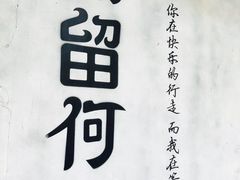 你在快乐的行走 而我在
留何